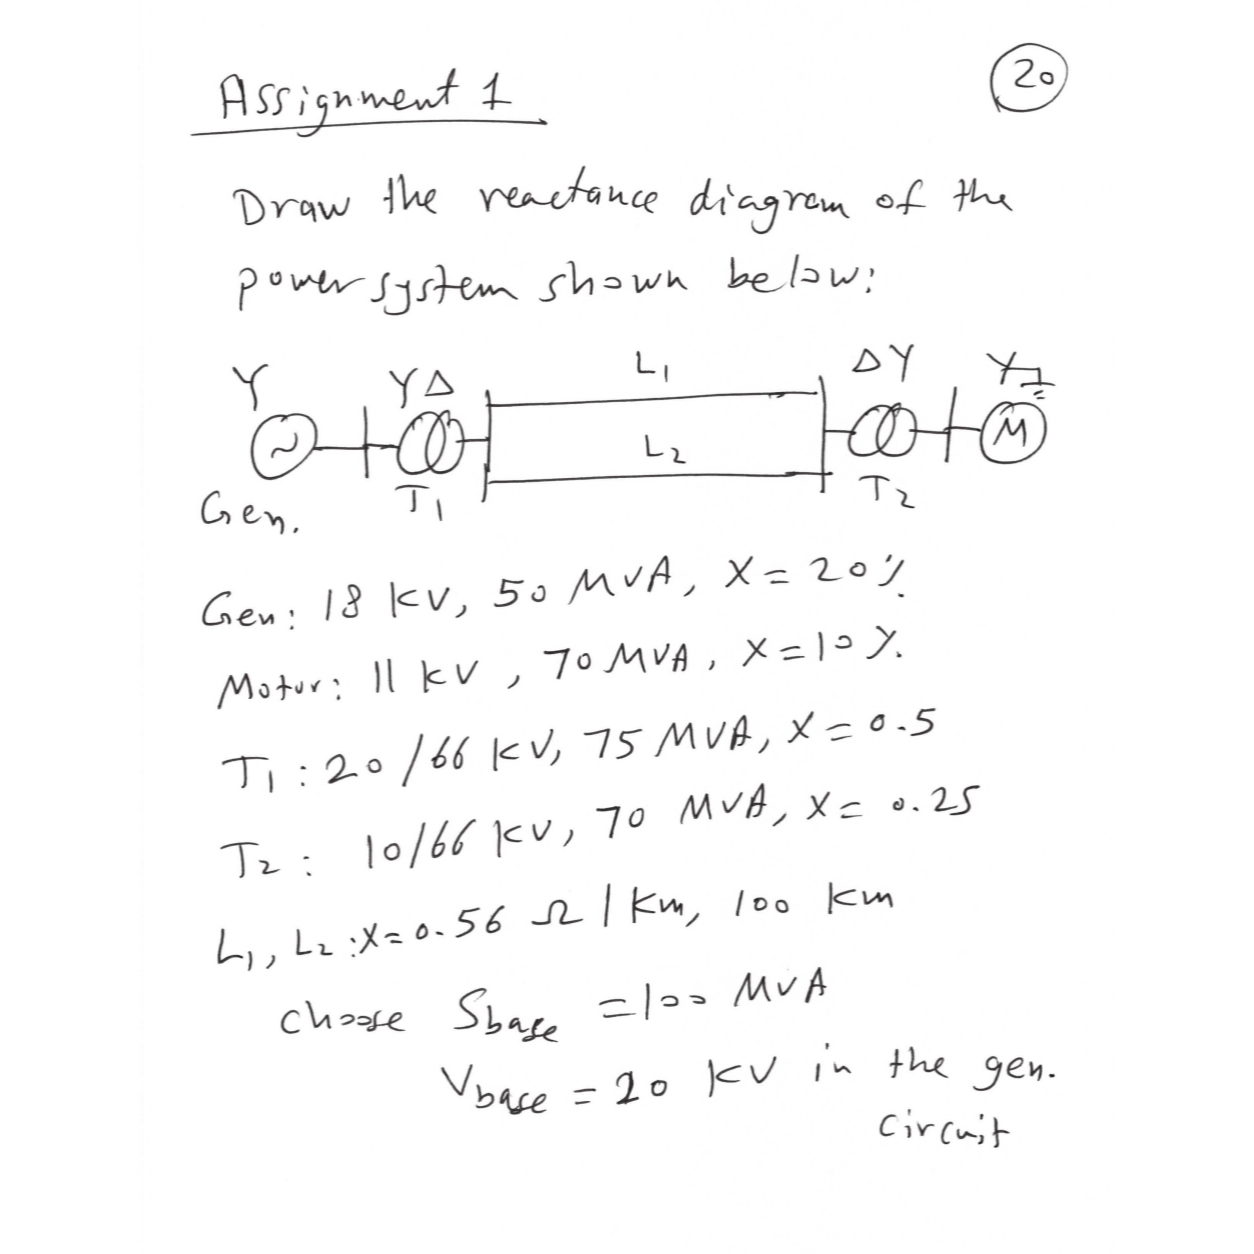 Assignment 1
20
Draw the reactance diagram of the
power system shown below:
Y
YΔ
L1
ΔY
Y
~
L2
M
Gen.
T1
T2
Gen: 18 kV, 50 MVA, X = 20%
Motor: 11 kV, 70 MVA, X = 10%
T1: 20/66 kV, 75 MVA, X = 0.5
T2: 10/66 kV, 70 MVA, X = 0.25
L1, L2: X = 0.56 Ω/km, 100 km
choose Sbase = 100 MVA
Vbase = 20 kV in the gen.
circuit